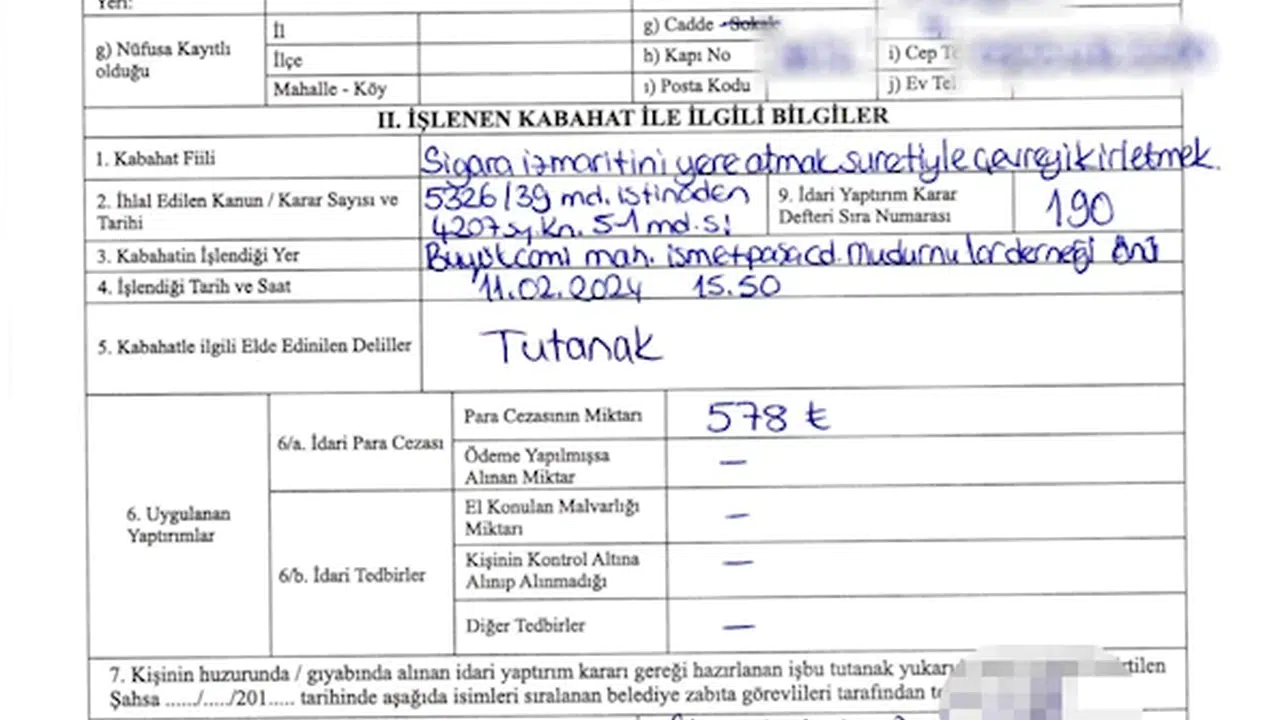 Yeri:
g) Nüfusa Kayıtlı olduğu
İl
İlçe
Mahalle - Köy
g) Cadde - Sokak
h) Kapı No
ı) Posta Kodu
i) Cep Te
j) Ev Tel
II. İŞLENEN KABAHAT İLE İLGİLİ BİLGİLER
1. Kabahat Fiili
Sigara izmaritini yere atmak suretiyle çevreyi kirletmek.
2. İhlal Edilen Kanun / Karar Sayısı ve
Tarihi
5326/39 md. istinaden
4207 sy. kn. 5-1 md.si
9. İdari Yaptırım Karar
Defteri Sıra Numarası
190
3. Kabahatin İşlendiği Yer
Büyükcami mah. ismetpaşa cd. Mudurnulular derneği önü
4. İşlendiği Tarih ve Saat
11.02.2024 15.50
5. Kabahatle ilgili Elde Edinilen Deliller
Tutanak
6. Uygulanan
Yaptırımlar
6/a. İdari Para Cezası
Para Cezasının Miktarı
578 ₺
Ödeme Yapılmışsa
Alınan Miktar
—
6/b. İdari Tedbirler
El Konulan Malvarlığı
Miktarı
—
Kişinin Kontrol Altına
Alınıp Alınmadığı
—
Diğer Tedbirler
—
7. Kişinin huzurunda / gıyabında alınan idari yaptırım kararı gereği hazırlanan işbu tutanak
Şahsa ....../...../201..... tarihinde aşağıda isimleri sıralanan belediye zabıta görevlileri tarafından